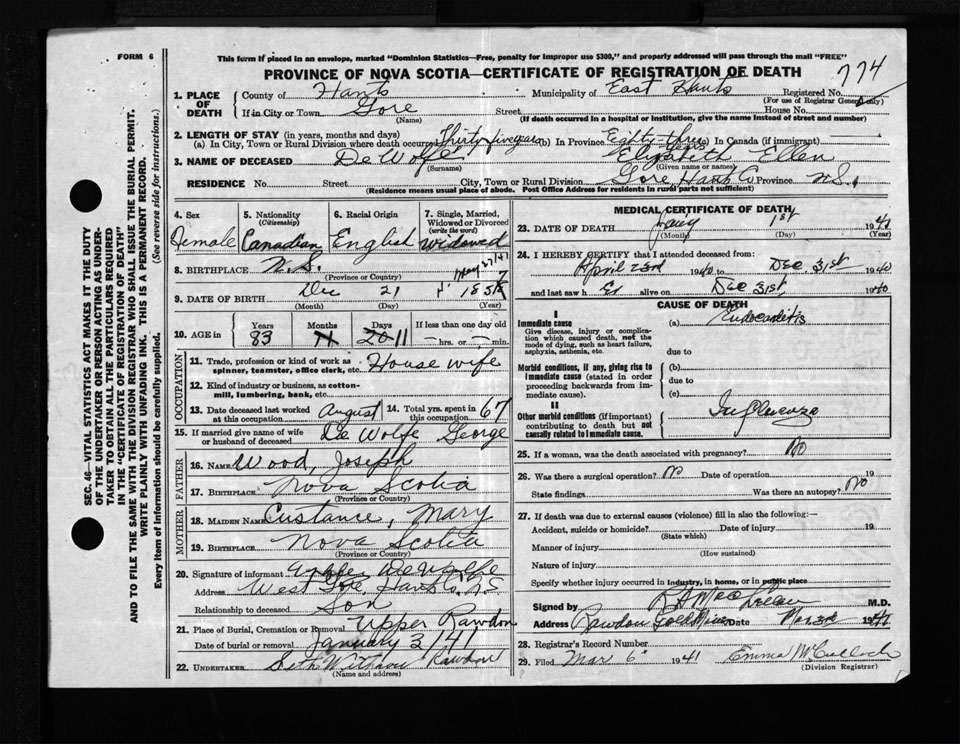 FORM 6
This form if placed in an envelope, marked "Dominion Statistics—Free, penalty for improper use $300," and properly addressed will pass through the mail "FREE"
PROVINCE OF NOVA SCOTIA—CERTIFICATE OF REGISTRATION OF DEATH
774
1. PLACE OF DEATH
County of Hants Municipality of East Hants Registered No.
(For use of Registrar General only)
If in City or Town Gore Street House No.
(Name) (If death occurred in a hospital or institution, give the name instead of street and number)
2. LENGTH OF STAY (in years, months and days)
(a) In City, Town or Rural Division where death occurred Thirty five years (b) In Province Eighty three (c) In Canada (if immigrant)
3. NAME OF DECEASED De Wolfe Elizabeth Ellen
(Surname) (Given name or names)
RESIDENCE No. Street City, Town or Rural Division Gore Hants Co Province N.S.
(Residence means usual place of abode. Post Office Address for residents in rural parts not sufficient)
4. Sex 5. Nationality 6. Racial Origin 7. Single, Married, Widowed or Divorced
(Citizenship) (write the word)
Female Canadian English Widowed
8. BIRTHPLACE N.S.
(Province or Country)
9. DATE OF BIRTH Dec 21 1857
(Month) (Day) (Year)
10. AGE in Years Months Days If less than one day old
83 11 hrs. or min.
11. Trade, profession or kind of work as spinner, teamster, office clerk, etc. House wife
12. Kind of industry or business, as cotton-mill, lumbering, bank, etc.
13. Date deceased last worked at this occupation August 14. Total yrs. spent in this occupation 67
15. If married give name of wife or husband of deceased De Wolfe George
OCCUPATION
FATHER
16. NAME Wood, Joseph
17. BIRTHPLACE Nova Scotia
(Province or Country)
MOTHER
18. MAIDEN NAME Custance, Mary
19. BIRTHPLACE Nova Scotia
(Province or Country)
20. Signature of informant DeWolfe
Address West Gore, Hants Co. N.S.
Relationship to deceased Son
21. Place of Burial, Cremation or Removal Upper Rawdon
Date of burial or removal January 3/41
22. UNDERTAKER Seth Withrow Rawdon
(Name and address)
MEDICAL CERTIFICATE OF DEATH
23. DATE OF DEATH Jany 1st 1941
(Month) (Day) (Year)
24. I HEREBY CERTIFY that I attended deceased from:
April 23rd 1940 to Dec. 31st 1940
and last saw h er alive on Dec 31st, 1940
CAUSE OF DEATH
I
Immediate cause (a) Endocarditis
Give disease, injury or complication which caused death, not the mode of dying, such as heart failure, asphyxia, asthenia, etc.
due to
Morbid conditions, if any, giving rise to immediate cause (stated in order proceeding backwards from immediate cause).
(b)
due to
(c)
II
Other morbid conditions (if important) contributing to death but not causally related to immediate cause.
Influenza
25. If a woman, was the death associated with pregnancy? No
26. Was there a surgical operation? no Date of operation 19
State findings Was there an autopsy? No
27. If death was due to external causes (violence) fill in also the following:—
Accident, suicide or homicide? Date of injury 19
(State which)
Manner of injury
(How sustained)
Nature of injury
Specify whether injury occurred in industry, in home, or in public place
Signed by M.D.
Address Rawdon Gold Mines Date Mar 3rd 1941
28. Registrar's Record Number
29. Filed Mar 6 1941 Emma McCulloch
(Division Registrar)
SEC. 46—VITAL STATISTICS ACT MAKES IT THE DUTY
OF THE UNDERTAKER OR PERSON ACTING AS UNDER-
TAKER "TO OBTAIN ALL THE PARTICULARS REQUIRED
IN THE "CERTIFICATE OF REGISTRATION OF DEATH"
AND TO FILE THE SAME WITH THE DIVISION REGISTRAR WHO SHALL ISSUE THE BURIAL PERMIT.
WRITE PLAINLY WITH UNFADING INK. THIS IS A PERMANENT RECORD.
Every item of Information should be carefully supplied. (See reverse side for instructions.)